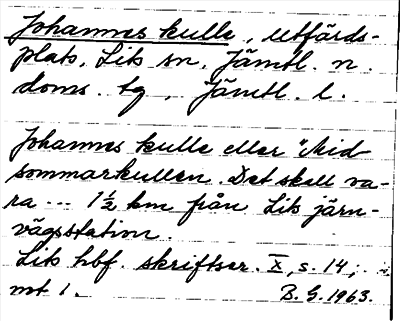 Johannes kulle, utfärds-
plats, Lits sn. Jämtl. n.
doms. tg, Jämtl. l.
Johannes kulle eller "Mid
sommarkullen. Det skall va-
ra --- 1½ km från Lits järn-
vägsstation.
Lits hbf. skriftser. X, s. 14;
not 1. B. G. 1963.